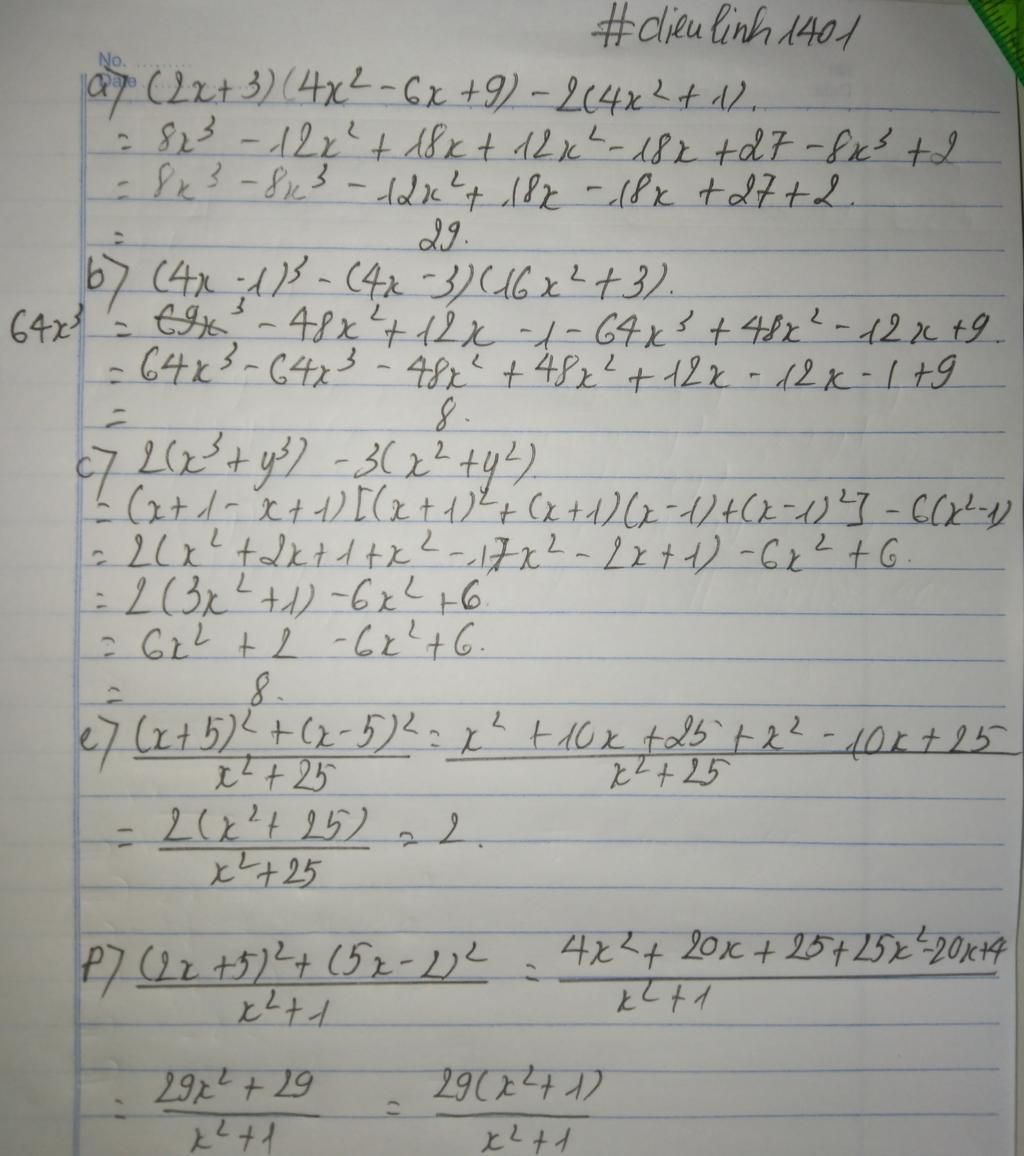 #dieulinh1401
No. ..........
Date
a) (2x+3)(4x² - 6x + 9) - 2(4x² + 1).
= 8x³ - 12x² + 18x + 12x² - 18x + 27 - 8x³ + 2
= 8x³ - 8x³ - 12x² + 18x - 18x + 27 + 2.
= 29.
b) (4x - 1)³ - (4x - 3)(16x² + 3).
64x³ = 69x³ - 48x² + 12x - 1 - 64x³ + 48x² - 12x + 9.
= 64x³ - 64x³ - 48x² + 48x² + 12x - 12x - 1 + 9
= 8.
c) 2(x³ + y³) - 3(x² + y²).
= (x + 1 - x + 1)[(x + 1)² + (x + 1)(x - 1) + (x - 1)²] - 6(x² - 1)
= 2(x² + 2x + 1 + x² - 1 + x² - 2x + 1) - 6x² + 6.
= 2(3x² + 1) - 6x² + 6.
= 6x² + 2 - 6x² + 6.
= 8.
e) (x + 5)² + (x - 5)² / x² + 25 = x² + 10x + 25 + x² - 10x + 25 / x² + 25
= 2(x² + 25) / x² + 25 = 2.
f) (2x + 5)² + (5x - 2)² / x² + 1 = 4x² + 20x + 25 + 25x² - 20x + 4 / x² + 1
= 29x² + 29 / x² + 1 = 29(x² + 1) / x² + 1